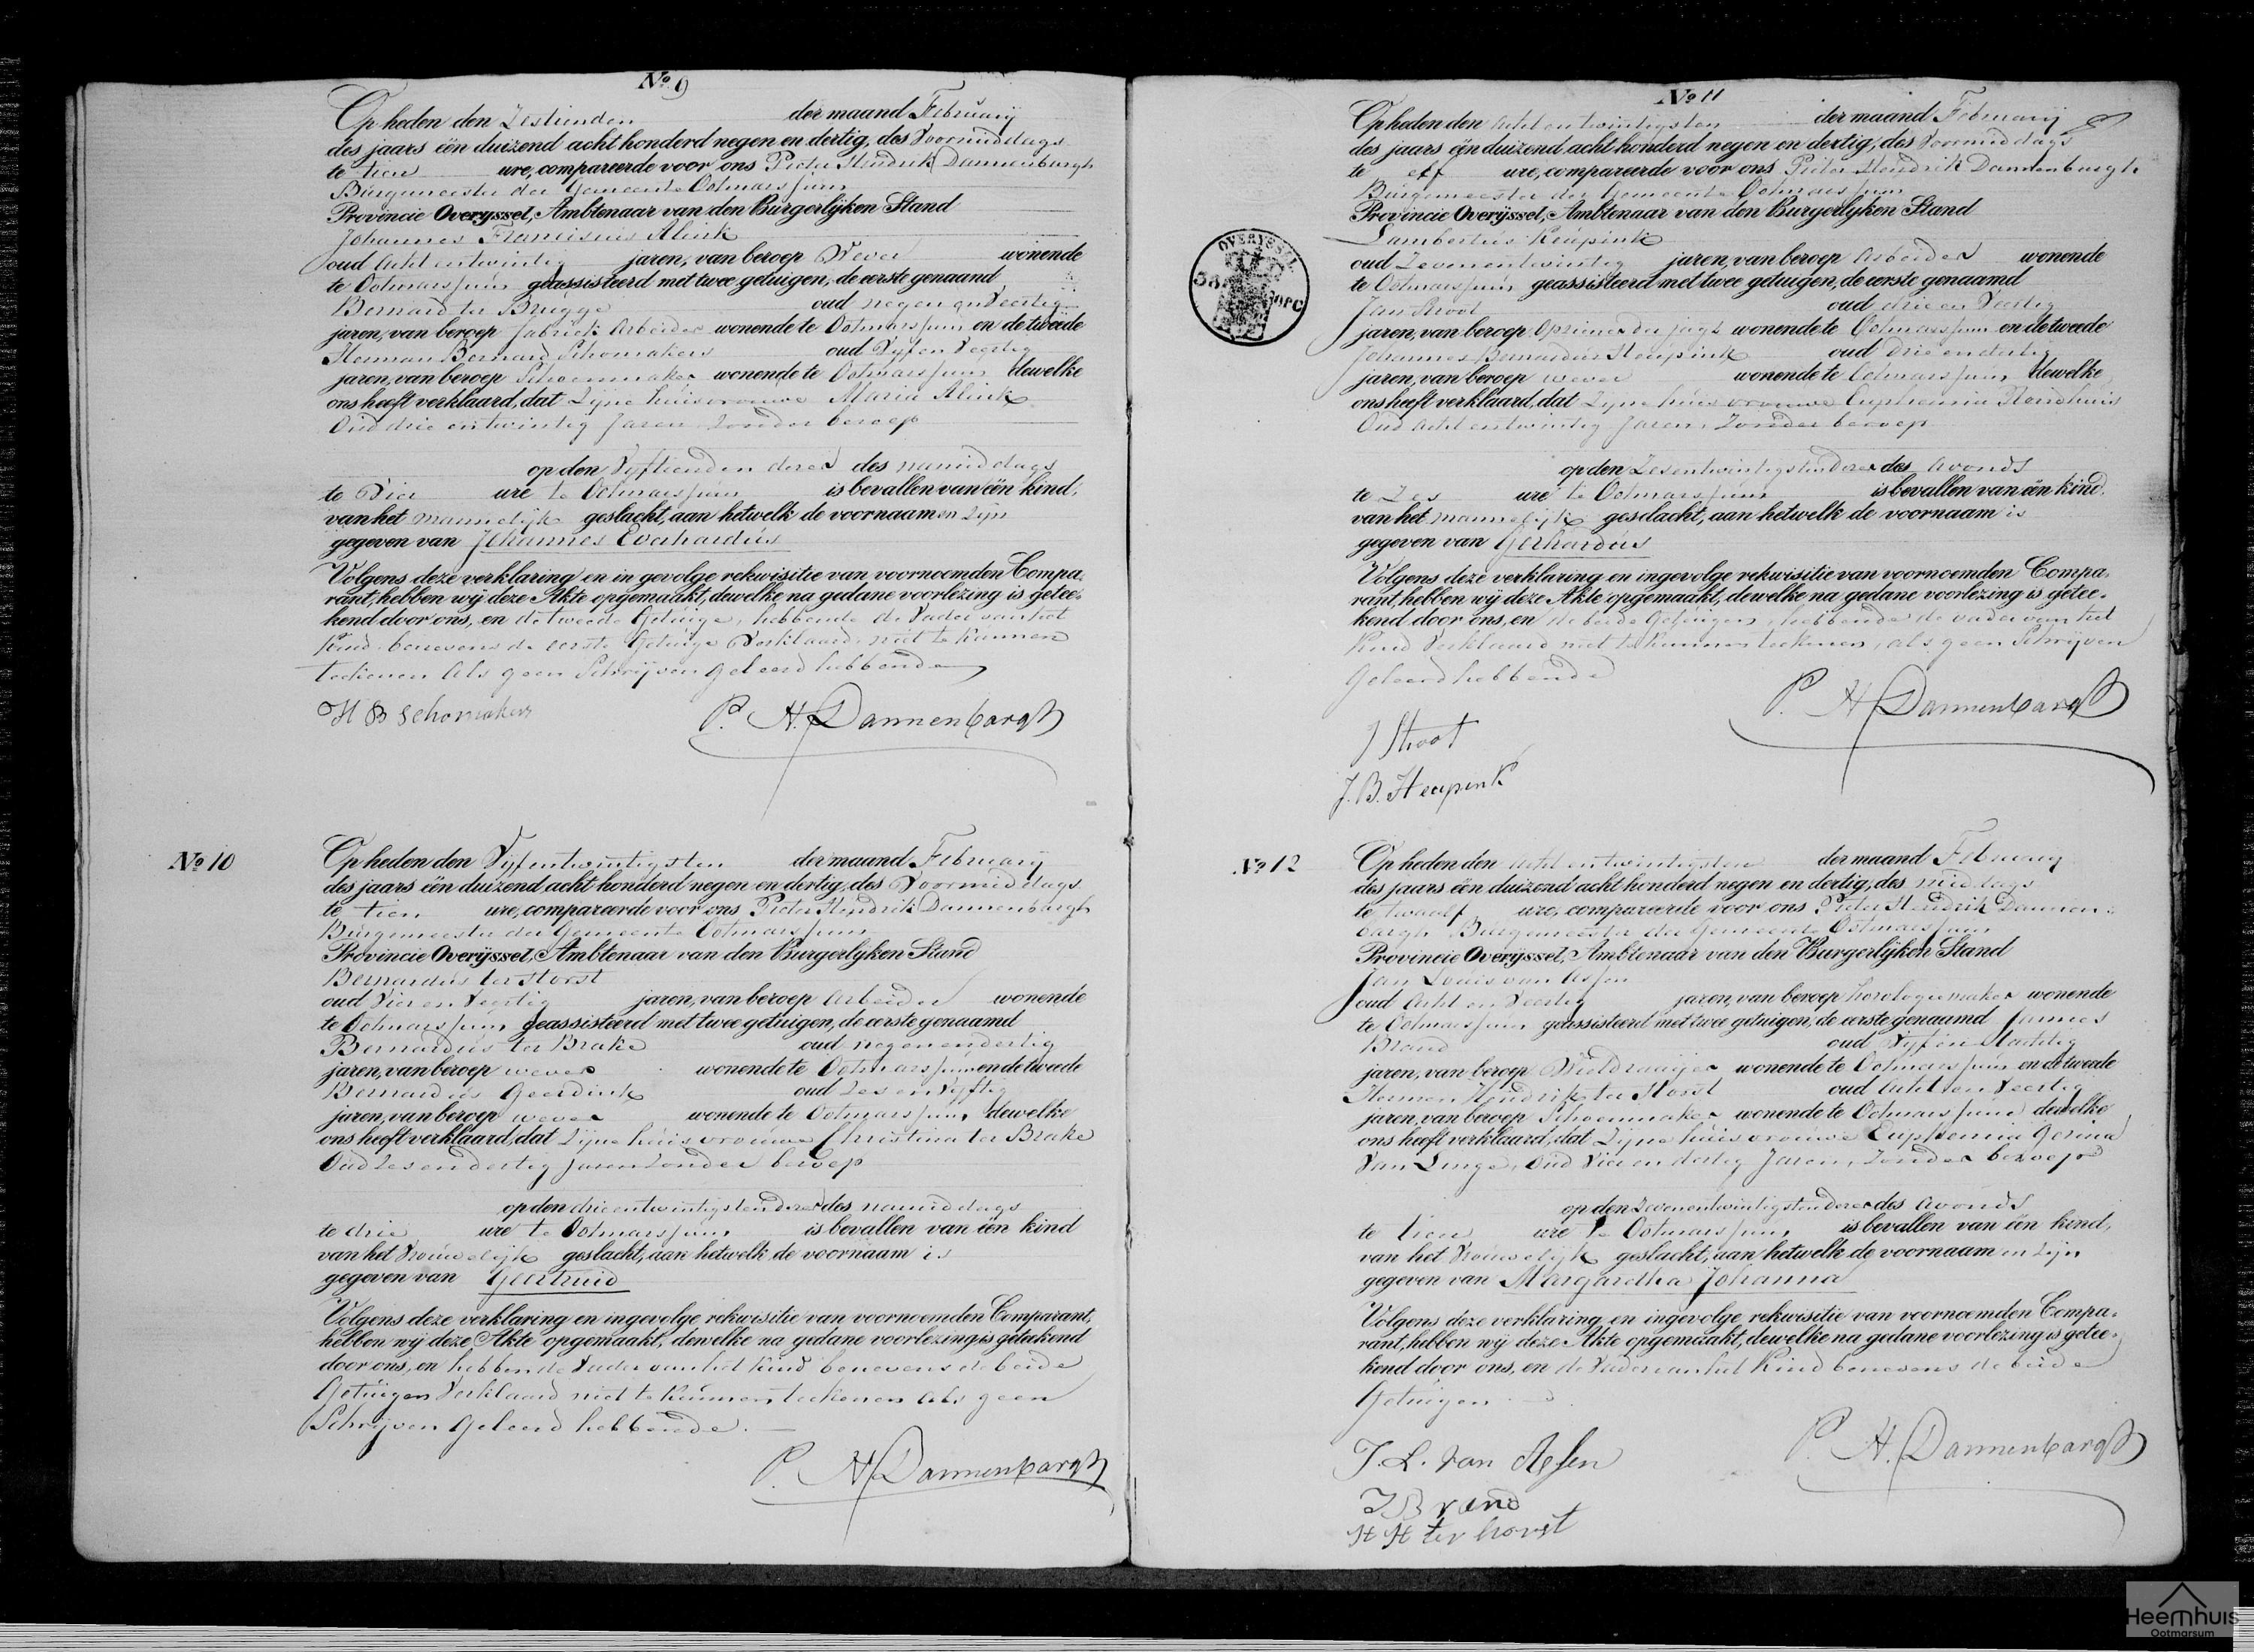 No 9
Op heden den Zestienden der maand February
des jaars één duizend acht honderd negen en dertig, des Voormiddags
te tien ure, compareerde voor ons Pieter Hendrik Dannenbargh
Burgemeester der Gemeente Ootmarssum
Provincie Overyssel, Ambtenaar van den Burgerlyken Stand
Johannes Franciscus Alink
oud acht entwintig jaren, van beroep Wever wonende
te Ootmarssum geassisteerd met twee getuigen, de eerste genaamd
Bernard ter Brugge oud negen en Veertig
jaren, van beroep fabriek Arbeider wonende te Ootmarssum en de tweede
Herman Bernard Schomakers oud Vyf en Veertig
jaren, van beroep Schoenmaker wonende te Ootmarssum dewelke
ons heeft verklaard, dat Zijne huisvrouwe Maria Alink
Oud drie entwintig Jaren, Zonder beroep
op den Vyftienden dezer des namiddags
te Vier ure te Ootmarssum is bevallen van één kind,
van het mannelijk geslacht, aan hetwelk de voornaamen zijn
gegeven van Johannes Everhardus
Volgens deze verklaring en in gevolge rekwisitie van voornoemden Compa-
rant, hebben wij deze Akte opgemaakt, dewelke na gedane voorlezing is getee-
kend door ons, en de tweede Getuige, hebbende de Vader van het
Kind benevens de eerste Getuige Verklaard niet te kunnen
teekenen Als geen Schrijven geleerd hebbende
H B Schomakers P. H. Dannenbargh
No 10
Op heden den Vyfentwintigsten der maand February
des jaars één duizend acht honderd negen en dertig, des Voormiddags
te tien ure, compareerde voor ons Pieter Hendrik Dannenbargh
Burgemeester der Gemeente Ootmarssum
Provincie Overyssel, Ambtenaar van den Burgerlyken Stand
Bernardus ter Horst
oud Vier en Veertig jaren, van beroep Arbeider wonende
te Ootmarssum geassisteerd met twee getuigen, de eerste genaamd
Bernardus ter Brake oud negenendertig
jaren, van beroep wever wonende te Ootmarssum en de tweede
Bernardus Geerdink oud Zes en Vyftig
jaren, van beroep wever wonende te Ootmarssum dewelke
ons heeft verklaard, dat Zijne huisvrouwe Christina ter Brake
Oud Zes en dertig jaren Zonder beroep
op den drieentwintigsten dezer des namiddags
te drie ure te Ootmarssum is bevallen van één kind
van het Vrouwelijk geslacht, aan hetwelk de voornaam is
gegeven van Geertruid
Volgens deze verklaring en ingevolge rekwisitie van voornoemden Comparant,
hebben wij deze Akte opgemaakt, dewelke na gedane voorlezing is geteekend
door ons, en hebbende Vader van het Kind benevens de beide
Getuigen Verklaard niet te kunnen teekenen als geen
Schrijven Geleerd hebbende.
P. H. Dannenbargh
No 11
Op heden den Acht entwintigsten der maand February
des jaars één duizend acht honderd negen en dertig, des Voormiddags
te elf ure, compareerde voor ons Pieter Hendrik Dannenbargh
Burgemeester der Gemeente Ootmarssum
Provincie Overijssel, Ambtenaar van den Burgerlyken Stand
OVERYSSEL
Lambertus Keupink
oud Zevenentwintig jaren, van beroep Arbeider wonende
te Ootmarssum geassisteerd met twee getuigen, de eerste genaamd
Jan Stroot oud drie en Veertig
jaren, van beroep Opziener der jagt wonende te Ootmarssum en de tweede
Johannes Bernardus Heupink oud Drie en dertig
jaren, van beroep wever wonende te Ootmarssum dewelke
ons heeft verklaard, dat Zijne huisvrouwe Euphemia
Oud Acht entwintig Jaren, Zonder beroep
op den Zesentwintigsten dezer des Avonds
te Zes ure te Ootmarssum is bevallen van één kind,
van het mannelijk geslacht, aan hetwelk de voornaam is
gegeven van Gerhardus
Volgens deze verklaring en ingevolge rekwisitie van voornoemden Compa-
rant, hebben wij deze Akte opgemaakt, dewelke na gedane voorlezing is getee-
kend door ons, en de beide Getuigen, hebbende de vader van het
Kind Verklaard niet te kunnen teekenen, als geen Schrijven
Geleerd hebbende
P. H. Dannenbargh
J Stroot
J. B. Heupink
No 12
Op heden den Acht entwintigsten der maand February
des jaars één duizend acht honderd negen en dertig, des middags
te twaalf ure, compareerde voor ons Pieter Hendrik Dannen-
bargh Burgemeester der Gemeente Ootmarssum
Provincie Overyssel, Ambtenaar van den Burgerlyken Stand
Jan Louis van Assen
oud Acht en Veertig jaren, van beroep horologiemaker wonende
te Ootmarssum geassisteerd met twee getuigen, de eerste genaamd Jannes
Brand oud Vyf en
jaren, van beroep Wieldraaijer wonende te Ootmarssum en de tweede
Herman Hendrik ter Horst oud Acht en Veertig
jaren, van beroep Schoenmaker wonende te Ootmarssum dewelke
ons heeft verklaard, dat Zijne huisvrouwe Euphemia Gesina
Van Linge, Oud Vier en dertig Jaren, Zonder beroep
op den Zevenentwintigsten dezer des Avonds
te tien ure te Ootmarssum is bevallen van één kind,
van het Vrouwelijk geslacht, aan hetwelk de voornaamen zijn
gegeven van Margaretha Johanna
Volgens deze verklaring en ingevolge rekwisitie van voornoemden Compa-
rant, hebben wij deze Akte opgemaakt, dewelke na gedane voorlezing is getee-
kend door ons, en de Vader van het Kind benevens de beide
Getuigen.
J. L. van Assen P. H. Dannenbargh
J Brand
H H ter horst
Heemhuis
Ootmarsum